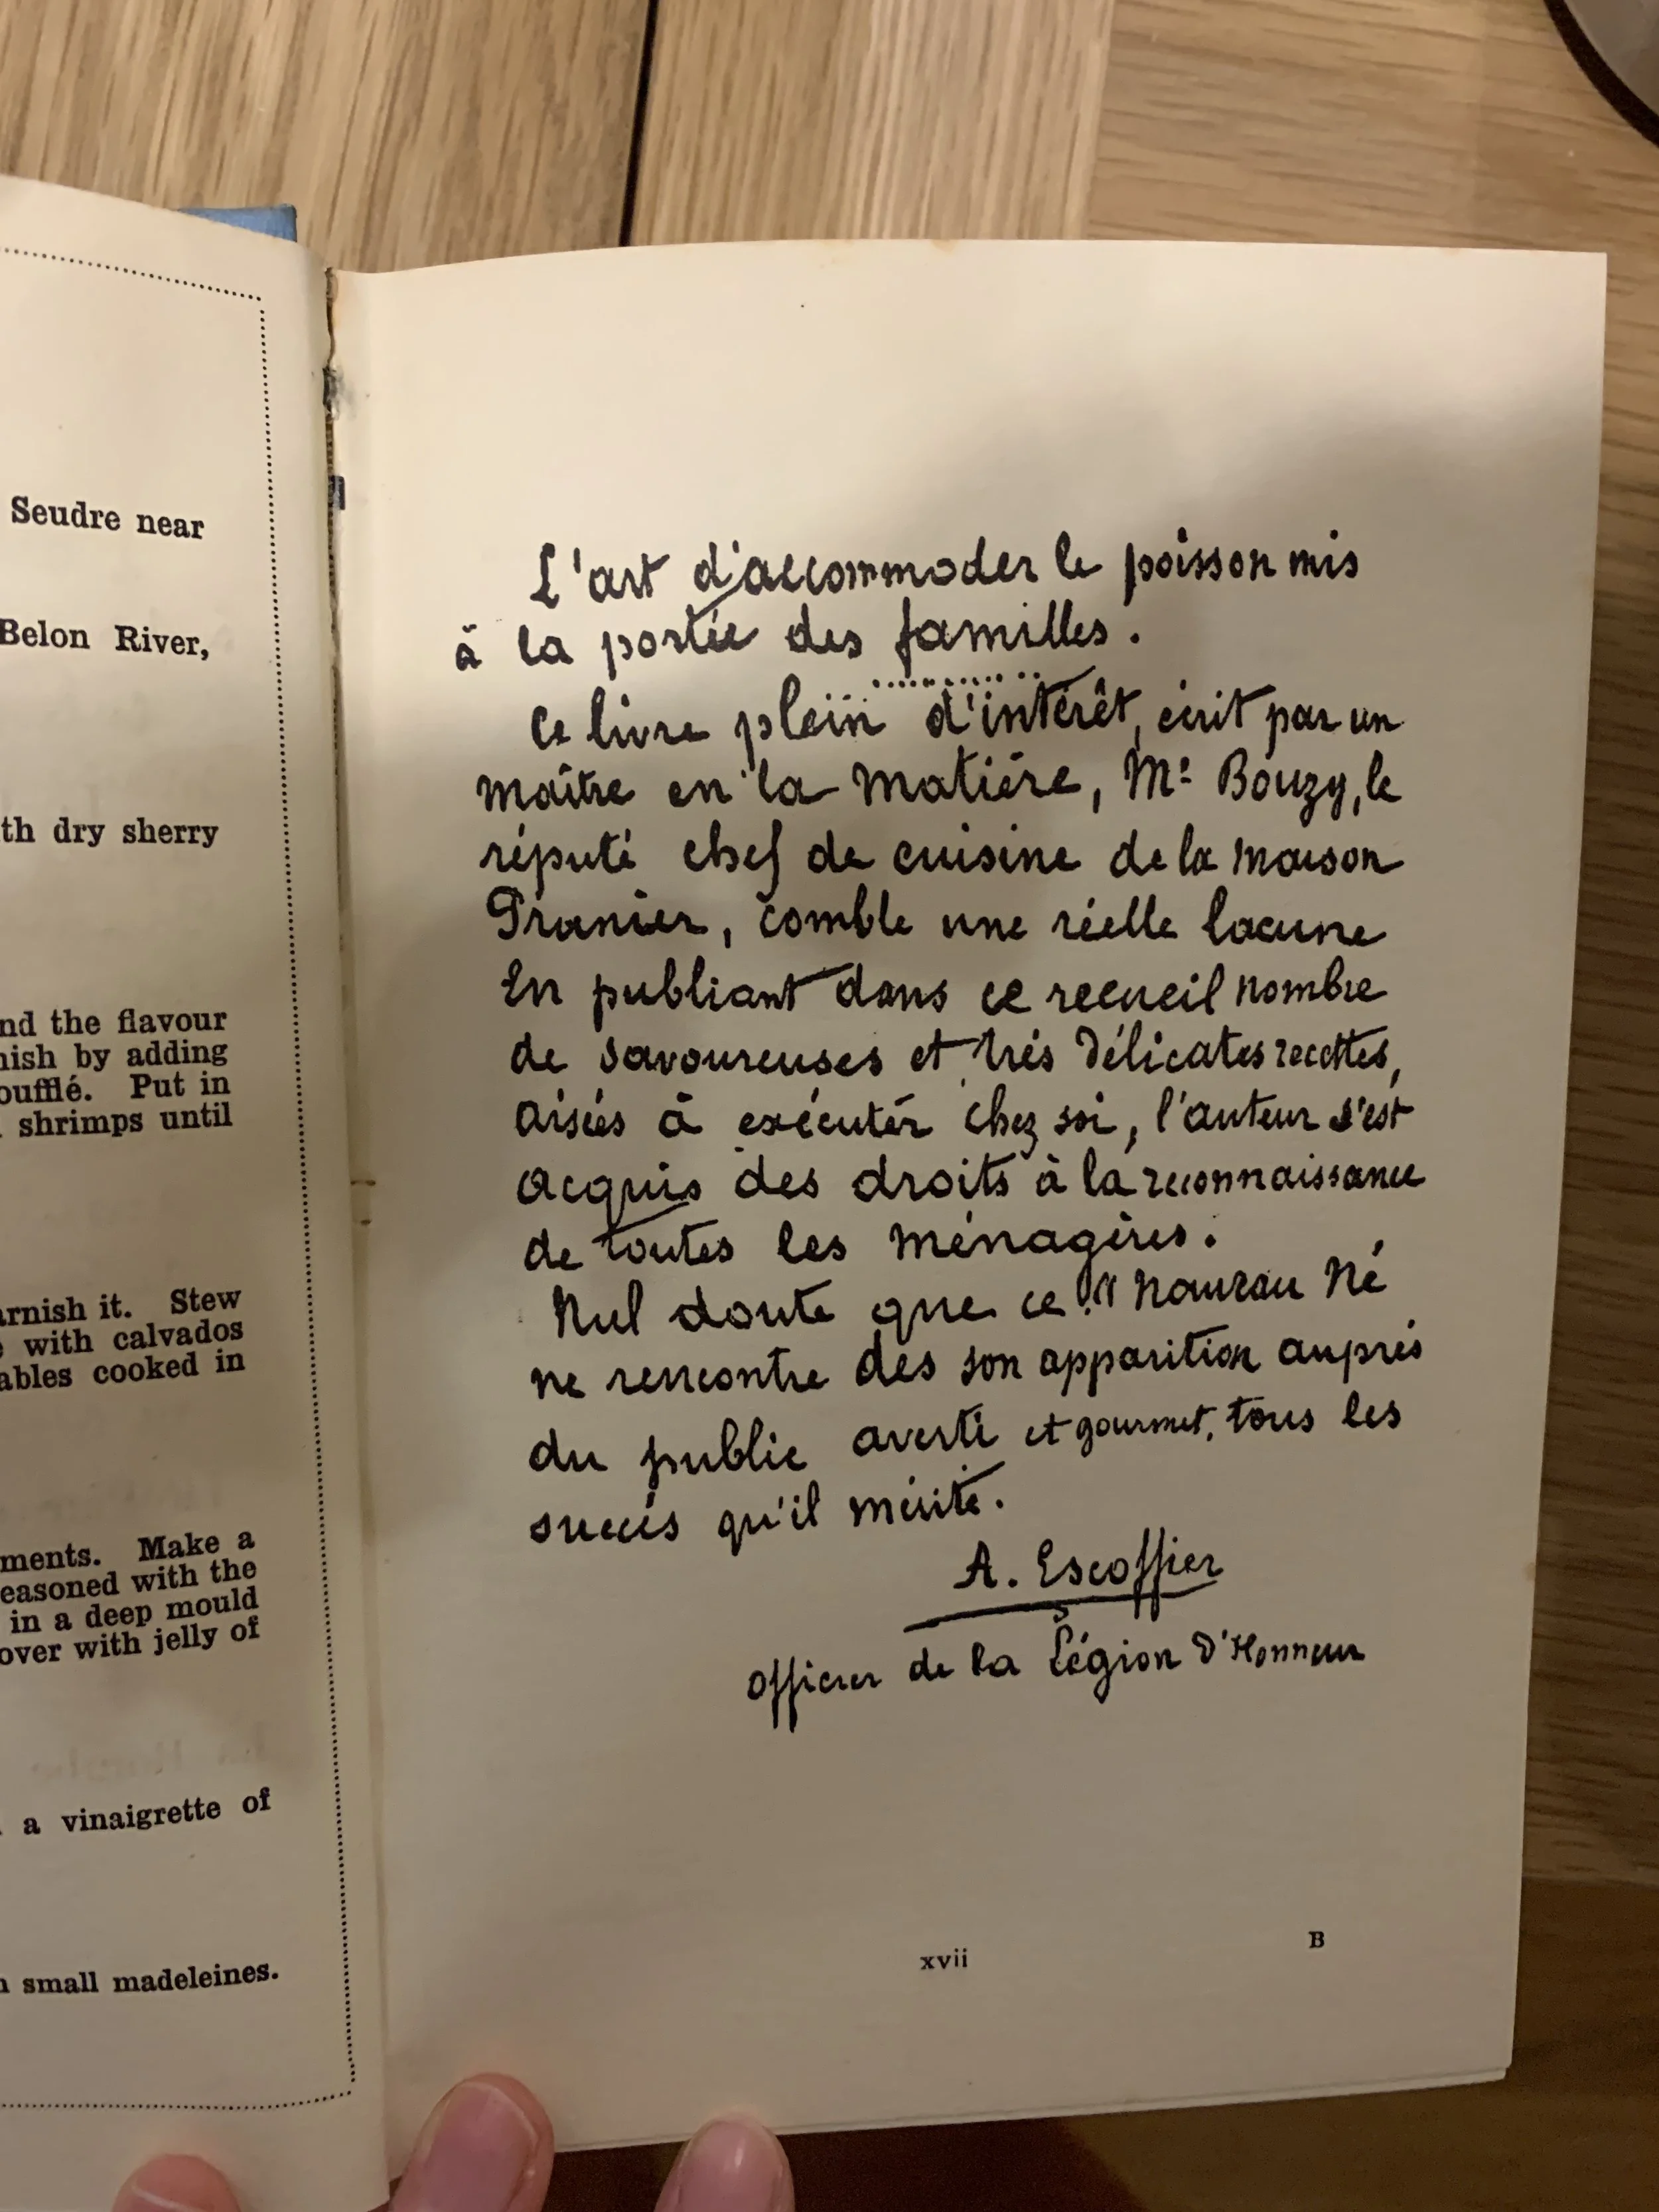 Seudre near
Belon River,
th dry sherry
nd the flavour
nish by adding
oufflé. Put in
shrimps until
arnish it. Stew
with calvados
ables cooked in
ments. Make a
easoned with the
in a deep mould
over with jelly of
a vinaigrette of
small madeleines.
L'art d'accommoder le poisson mis
à la portée des familles.
Ce livre plein d'intérêt, écrit par un
maître en la matière, Mr Bouzy, le
réputé chef de cuisine de la maison
Prunier, comble une réelle lacune
En publiant dans ce recueil nombre
de savoureuses et très délicates recettes,
aisées à exécuter chez soi, l'auteur s'est
acquis des droits à la reconnaissance
de toutes les ménagères.
Nul doute que ce "nouveau né
ne rencontre dès son apparition auprès
du public averti et gourmet, tous les
succès qu'il mérite.
A. Escoffier
Officier de la Légion D'Honneur
xvii
B